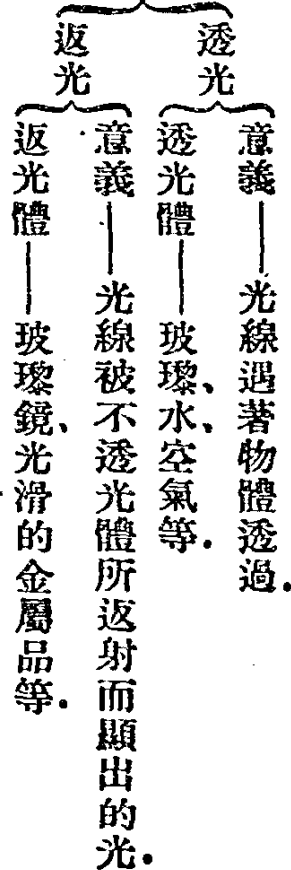 透光
意義——光線遇著物體透過.
透光體——玻瓈、水、空氣等.
返光
意義——光線被不透光體所返射而顯出的光.
返光體——玻瓈鏡、光滑的金屬品等.